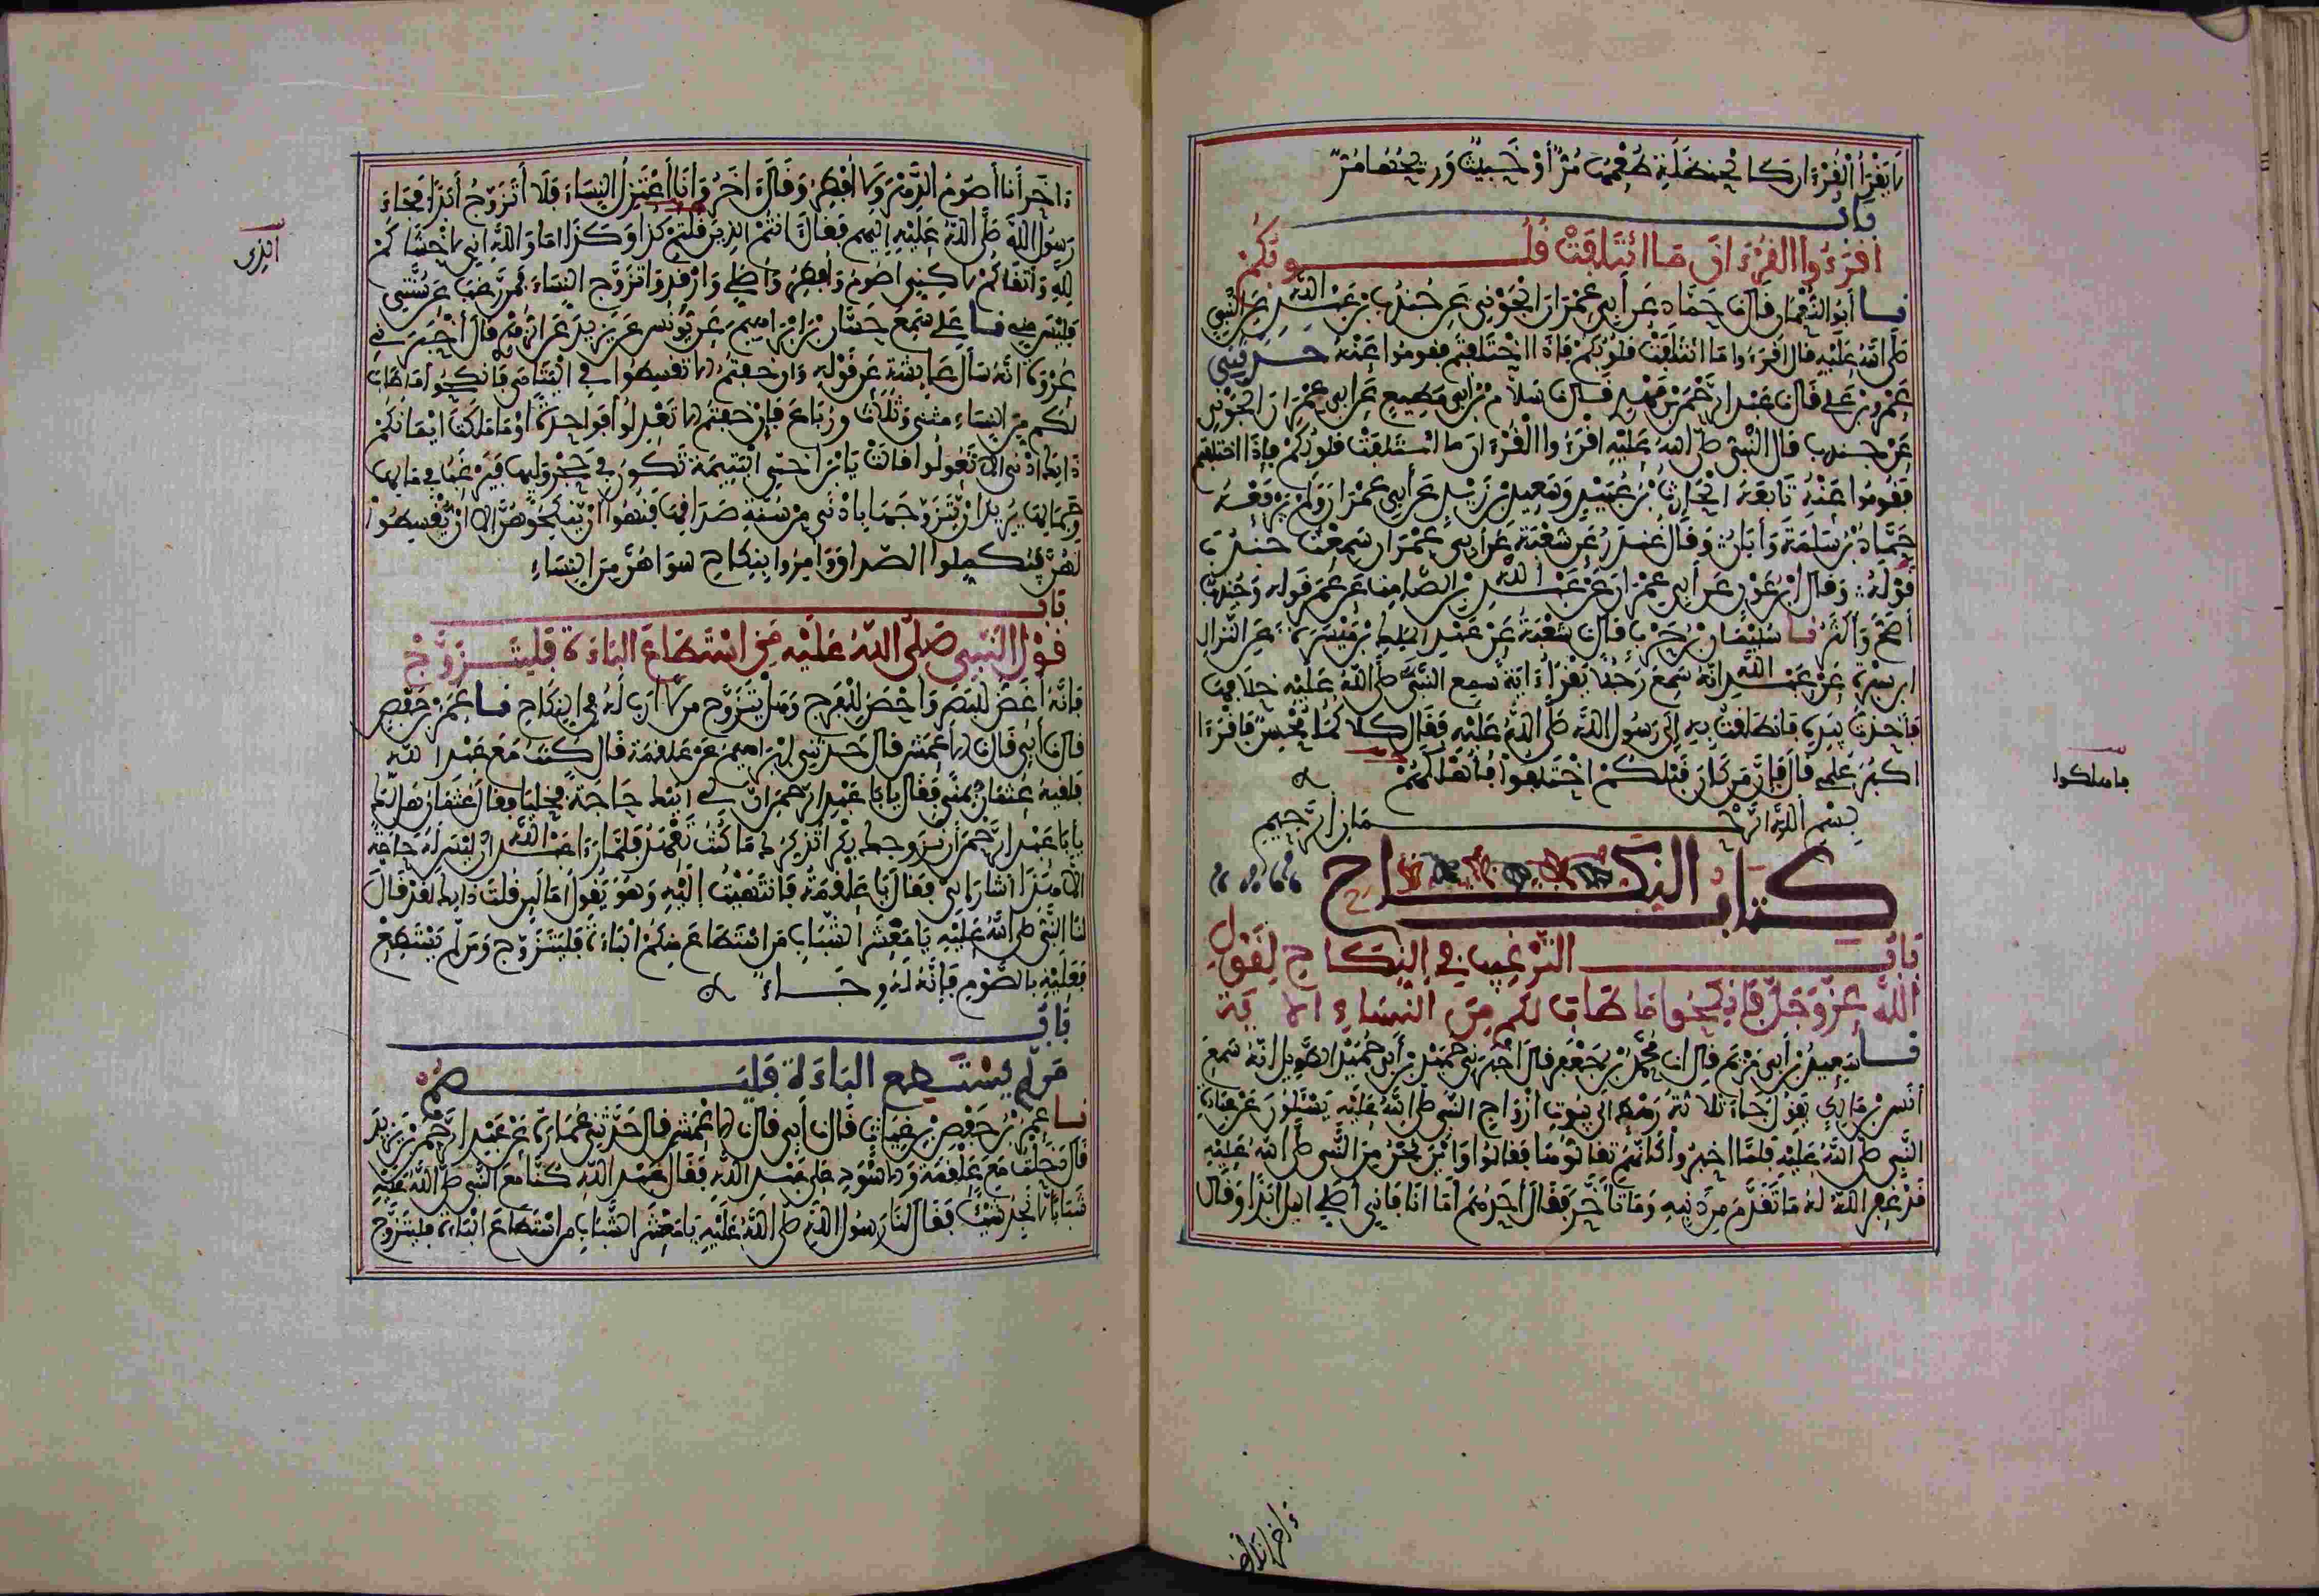 لا يقرأ القرءان كالحنظلة طعمها مر أو خبيث وريحها مر
باب
اقرءوا القرءان ما ائتلفت قلوبكم
نا أبو النعمان قال نا حماد عن أبي عمران الجوني عن جندب بن عبد الله عن النبي
صلى الله عليه قال اقرءوا ما ائتلفت قلوبكم فإذا اختلفتم فقوموا عنه حدثني
عمرو بن علي قال نا عبد الرحمن بن مهدي قال نا سلام بن أبي مطيع عن أبي عمران الجوني
عن جندب قال النبي صلى الله عليه اقرءوا القرءان ما ائتلفت قلوبكم فإذا اختلفتم
فقوموا عنه تابعه الحارث بن عبيد وسعيد بن زيد عن أبي عمران ولم يرفعه
حماد بن سلمة وأبان وقال غندر عن شعبة عن أبي عمران سمعت جندب
قوله وقال ابن عون عن أبي عمران عن عبد الله بن الصامت عن عمر قوله وجندب
أصح وأكثر نا سليمان بن حرب قال نا شعبة عن عبد الملك بن ميسرة عن النزال
ابن سبرة عن عبد الله أنه سمع رجلا يقرأ ءاية سمع النبي صلى الله عليه خلافها
فأخذت بيده فانطلقت به إلى رسول الله صلى الله عليه فقال كلاكما محسن فاقرءا
اكبر علمي قال فإن من كان قبلكم اختلفوا فأهلكهم
بسم الله الرحمان الرحيم
كتاب النكاح
باب الترغيب في النكاح لقول
الله عز وجل فانكحوا ما طاب لكم من النساء الاية
نا سعيد بن أبي مريم قال نا محمد بن جعفر قال أخبرني حميد بن أبي حميد الطويل أنه سمع
أنس بن مالك يقول جاء ثلاثة رهط إلى بيوت أزواج النبي صلى الله عليه يسئلون عن عبادة
النبي صلى الله عليه فلما اخبروا كأنهم تقالوها فقالوا وأين نحن من النبي صلى الله عليه
قد غفر الله له ما تقدم من ذنبه وما تأخر فقال أحدهم أما أنا فإني أصلي اليل أبدا وقال
فأهلكوا
ءاخر أنا أصوم
ءاخر أنا أصوم الدهر ولا أفطر وقال ءاخر وأنا أعتزل النساء فلا أتزوج أبدا فجاء
رسول الله صلى الله عليه إليهم فقال أنتم الذين قلتم كذا وكذا أما والله إني لأخشاكم
لله وأتقاكم لكني أصوم وأفطر وأصلي وأرقد وأتزوج النساء فمن رغب عن سنتي
فليس مني نا علي سمع حسان بن إبراهيم عن يونس بن يزيد عن الزهري قال أخبرني
عروة أنه سأل عائشة عن قوله وإن خفتم ألا تقسطوا في اليتامى فانكحوا ما طاب
لكم من النساء مثنى وثلاث ورباع فإن خفتم ألا تعدلوا فواحدة أو ما ملكت أيمانكم
ذلك أدنى ألا تعولوا قالت يا ابن أختي اليتيمة تكون في حجر وليها فيرغب في مالها
وجمالها يريد أن يتزوجها بأدنى من سنة صداقها فنهوا أن ينكحوهن إلا أن يقسطوا
لهن فيكملوا الصداق وأمروا بنكاح سواهن من النساء
باب
قول النبي صلى الله عليه من استطاع الباءة فليتزوج
فإنه أغض للبصر وأحصن للفرج وهل يتزوج من لا أرب له في النكاح نا عمر بن حفص
قال نا أبي قال نا الأعمش قال حدثني إبراهيم عن علقمة قال كنت مع عبد الله
فلقيه عثمان بمنى فقال يا أبا عبد الرحمن إن لي إليك حاجة فخليا فقال عثمان هل لك
يا أبا عبد الرحمن أن نزوجك بكرا تذكرك ما كنت تعهد فلما رءا عبد الله أن ليس له حاجة
إلا هذا أشار إلي فقال يا علقمة فانتهيت إليه وهو يقول أما لين قلت ذلك لقد قال
لنا النبي صلى الله عليه يا معشر الشباب من استطاع منكم الباءة فليتزوج ومن لم يستطع
فعليه بالصوم فإنه له وجاء
باب
من لم يستطع الباءة فليصم
نا عمر بن حفص بن غياث قال نا أبي قال نا الأعمش قال حدثني عمارة عن عبد الرحمن بن يزيد
قال دخلت مع علقمة والأسود على عبد الله فقال عبد الله كنا مع النبي صلى الله عليه
شبابا لا نجد شيئا فقال لنا رسول الله صلى الله عليه يا معشر الشباب من استطاع الباءة فليتزوج
الذي